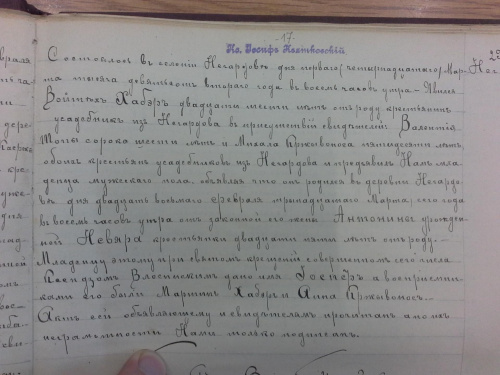 -17-
Кс. Іосифъ Квятковскій
Состоялось въ селеніи Негардовѣ дня перваго /четырнадцатаго/ Мар-
та тысяча девятьсотъ втораго года въ восемь часовъ утра. Явился
Войтѣхъ Хабэръ двадцати шести лѣтъ отъ роду крестьянинъ
усадебникъ изъ Негардова въ присутствіи свидѣтелей: Валентія
сорока шести лѣтъ и Михала Крживоноса пятидесяти лѣтъ,
обоихъ крестьянъ усадебниковъ изъ Негардова и предъявилъ Намъ мла-
денца мужскаго пола, объявляя что онъ родился въ деревнѣ Негардо-
вѣ дня двадцать восьмаго Февраля тринадцатаго Марта/ сего года
въ восемь часовъ утра отъ законной его жены Антонины урожден-
ной Невяра крестьянки двадцати пяти лѣтъ отъ роду.
Младенцу этому при святомъ крещеніи совершенномъ сего числа
Ксендзомъ дано имя Іосифъ а воспріемни-
ками его были Мартинъ Хабэръ и Анна Крживоносъ.
Актъ сей объявляющему и свидѣтелямъ прочитанъ а по ихъ
неграмотности Нами только подписанъ.